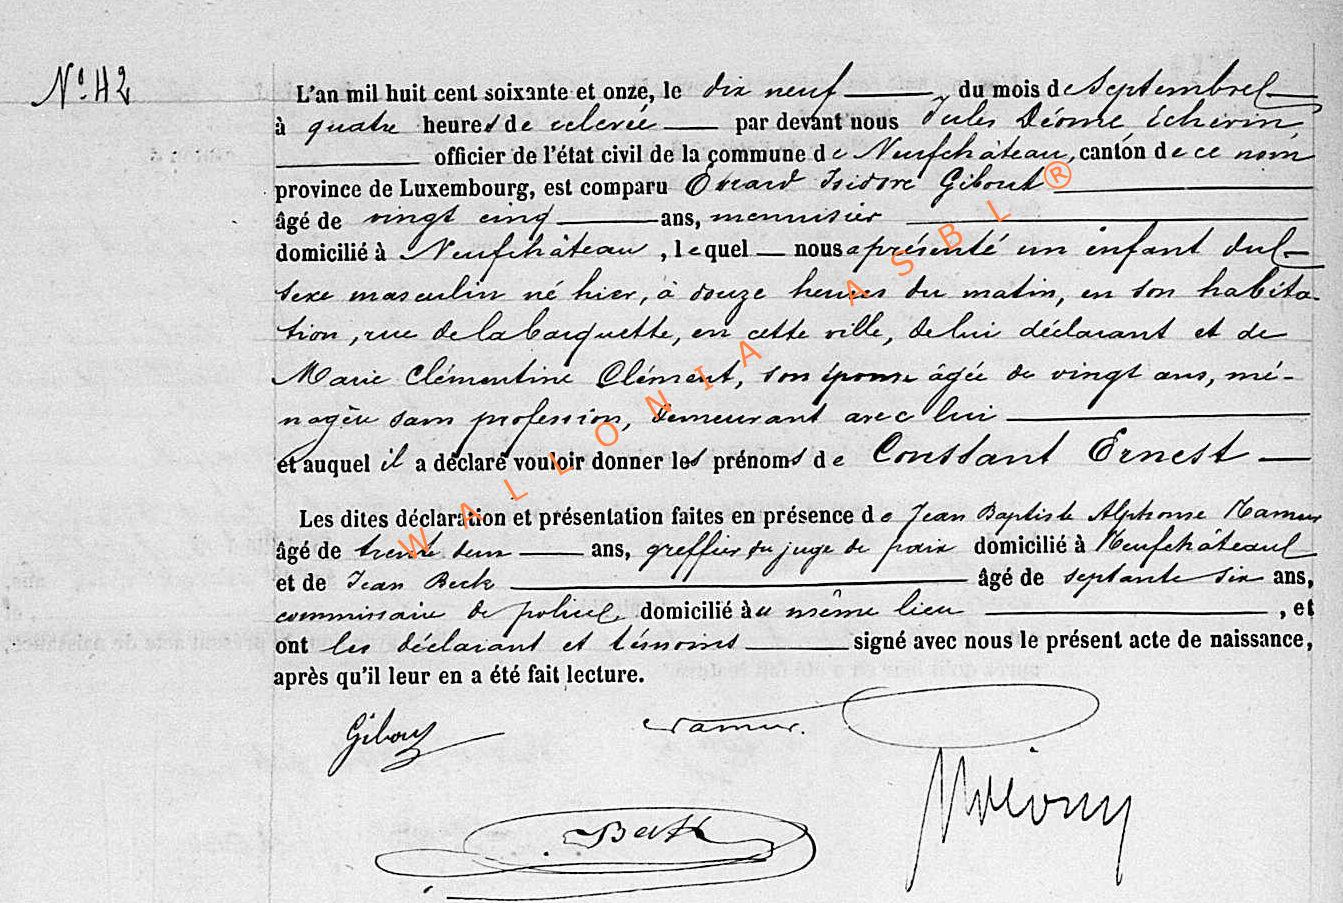 N° 42
L'an mil huit cent soixante et onze, le dix neuf du mois de Septembre
à quatre heures de relevée par devant nous Jules Déome Echevin,
officier de l'état civil de la commune de Neufchâteau, canton de ce nom
province de Luxembourg, est comparu Evrard Isidore Gibout
âgé de vingt cinq ans, menuisier
domicilié à Neufchâteau, lequel nous a présenté un enfant du
sexe masculin né hier, à douze heures du matin, en son habita-
tion, rue de la barquette, en cette ville, de lui déclarant et de
Marie Clémentine Clément, son épouse âgée de vingt ans, mé-
nagère sans profession, demeurant avec lui
et auquel il a déclaré vouloir donner les prénoms de Constant Ernest
Les dites déclaration et présentation faites en présence de Jean Baptiste Alphonse Namur
âgé de trente deux ans, greffier du juge de paix domicilié à Neufchâteau
et de Jean Beck âgé de septante six ans,
commissaire de police, domicilié au même lieu, et
ont les déclarant et témoins signé avec nous le présent acte de naissance,
après qu'il leur en a été fait lecture.
Gibout Namur.
Beck
WALLONIA ASBL ®